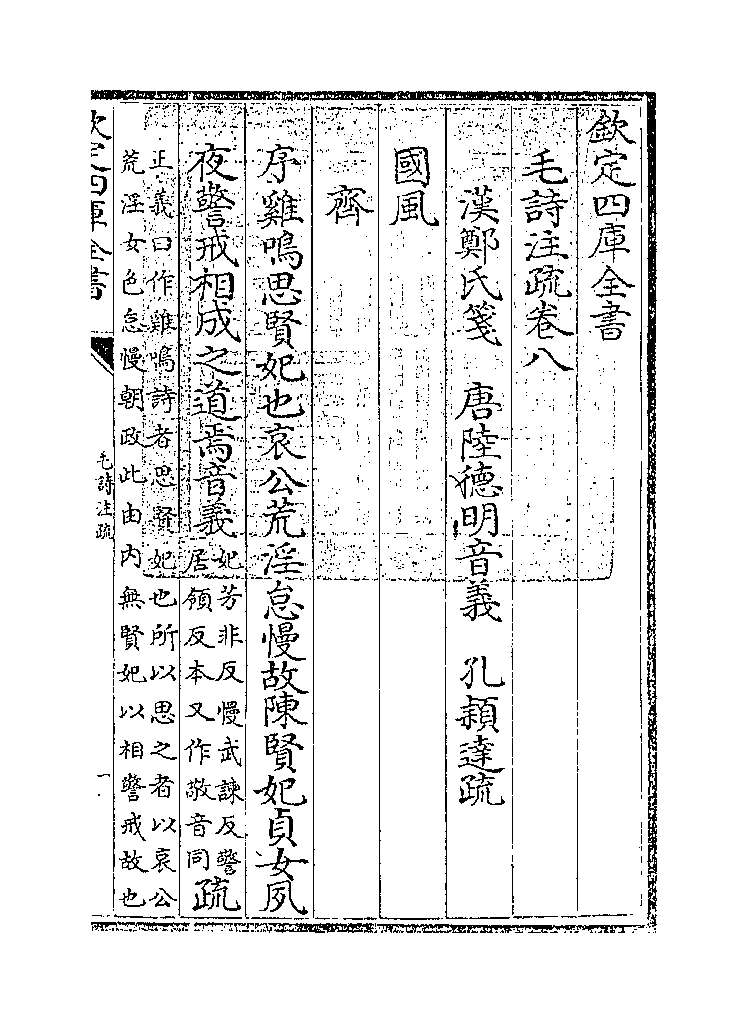 欽定四庫全書
毛詩注疏卷八
漢鄭氏箋 唐陸德明音義 孔穎達疏
國風
齊
序雞鳴思賢妃也哀公荒淫怠慢故陳賢妃貞女夙
夜警戒相成之道焉音義妃芳非反慢武諫反警
居領反本又作敬音同疏
正義曰作雞鳴詩者思賢妃也所以思之者以哀公
荒淫女色怠慢朝政此由内無賢妃以相警戒故也
欽定四庫全書
毛詩注疏
一